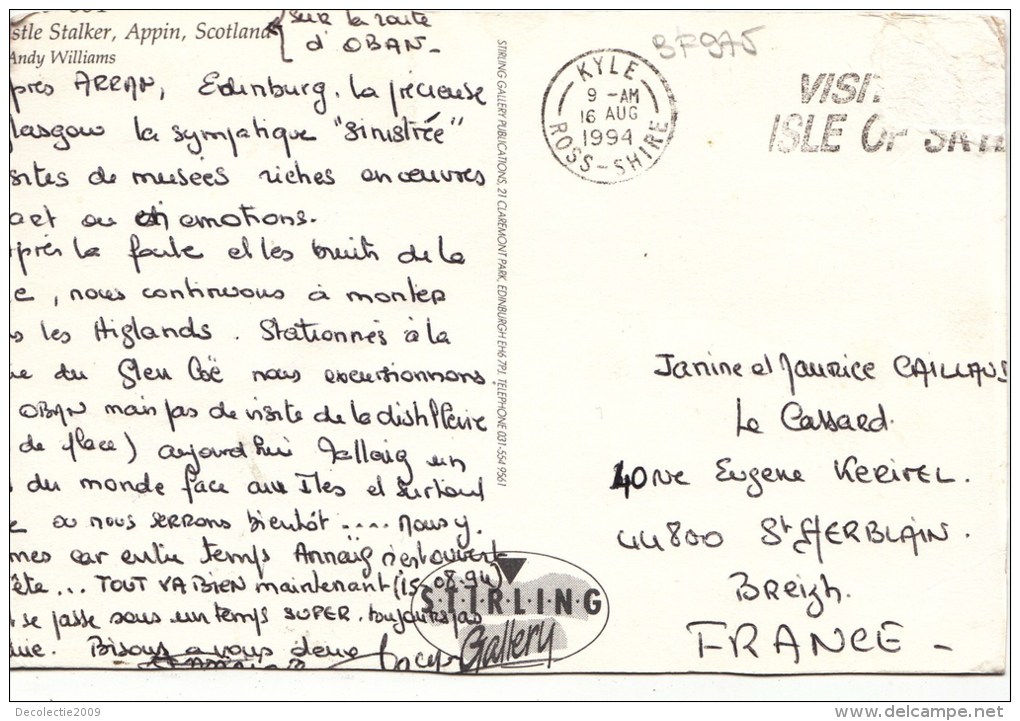 stle Stalker, Appin, Scotland
Andy Williams
sur la route
d'OBAN-
près ARRAN, Edinburg. la précieuse
lasgow la sympatique "sinistrée"
sites de musées riches en oeuvres
art ou en emotions.
près la foule et les bruits de la
e, nous continuons à monter
s les Higlands. Stationnés à la
e du Glen Coë nous excursionnons
OBAN mais pas de visite de la distillerie
de place) aujourd'hui Mallaig un
du monde face aux Iles et surtout
e ou nous serrons bientôt .... nous y.
mes car entre temps Annaïg s'est ouvert
ête... TOUT VA BIEN maintenant (15-08-94)
se passe sous un temps SUPER. toujours pas
uie. Bisous a vous deux
STIRLING GALLERY PUBLICATIONS, 21 CLAREMONT PARK, EDINBURGH EH6 7PJ, TELEPHONE 031-554 9561
S·T·I·R·L·I·N·G
Gallery
BF975
KYLE
9-AM
16 AUG
1994
ROSS-SHIRE
VISI
ISLE OF SKYE
Janine et Maurice CAILLAUS
Le Cassard.
40 rue Eugene KERIVEL.
44800 St HERBLAIN.
Breizh.
FRANCE-
Decolectie2009
www.delcampe.net